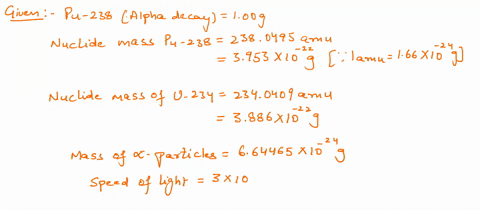 Given:- Pu-238 (Alpha decay) = 1.00g
Nuclide mass Pu-238 = 238.0495 amu
= 3.953 × 10⁻²² g [∵ 1 amu = 1.66 × 10⁻²⁴ g]
Nuclide mass of U-234 = 234.0409 amu
= 3.886 × 10⁻²² g
Mass of α-particles = 6.64465 × 10⁻²⁴ g
Speed of light = 3 × 10